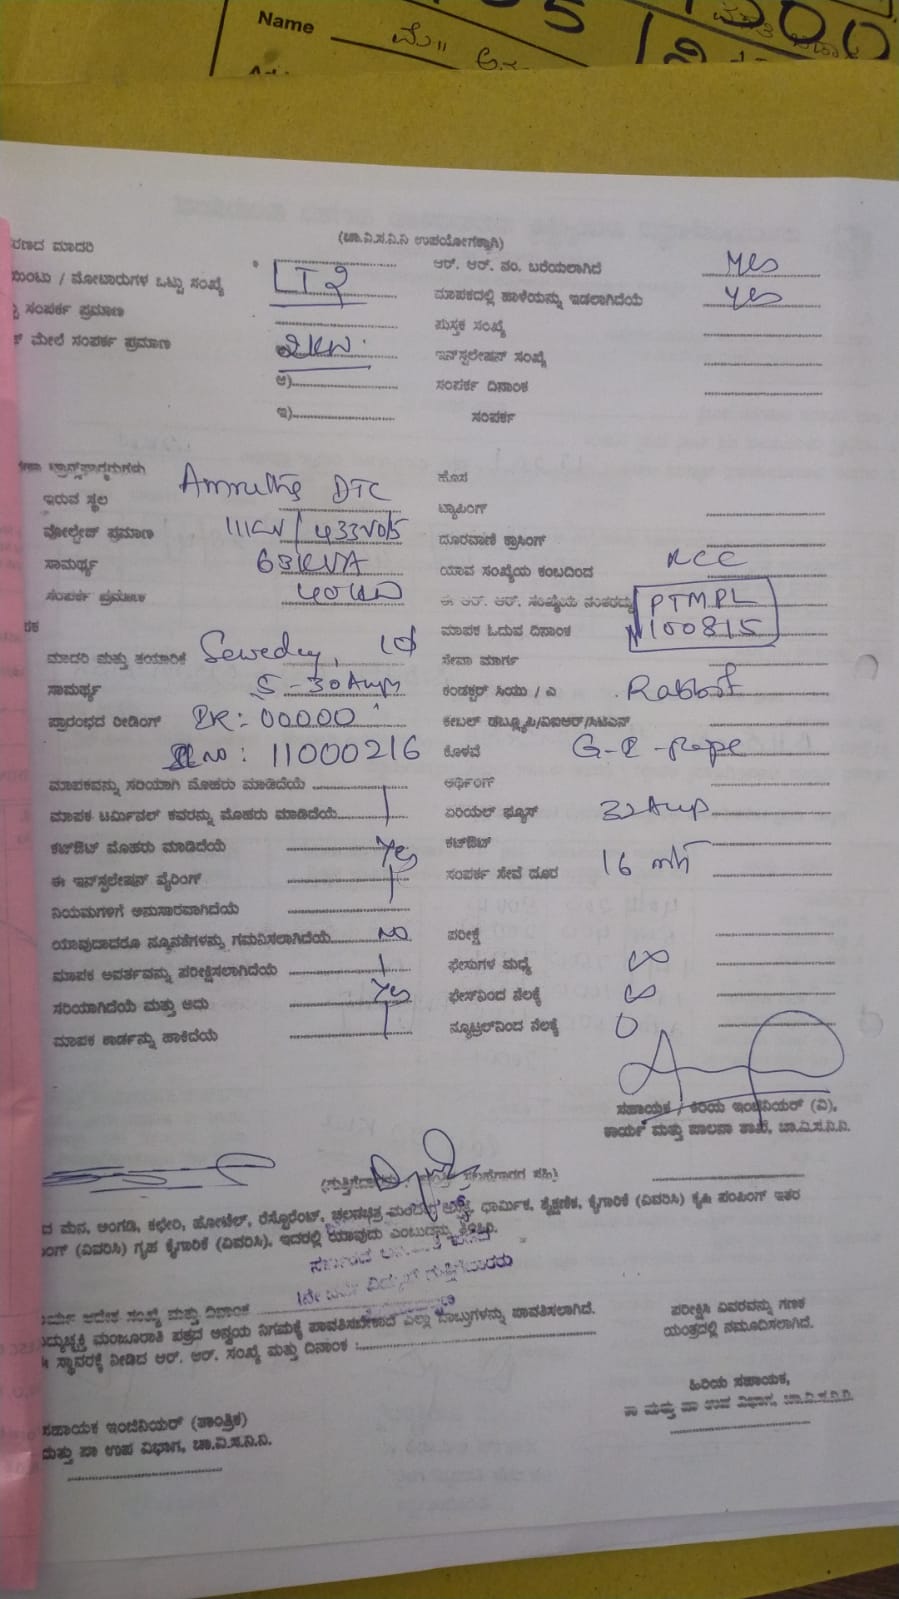 Name
(ಚಾ.ವಿ.ಸ.ನಿ.ನಿ ಉಪಯೋಗಕ್ಕಾಗಿ)
ರಣದ ಮಾದರಿ LT2 ಆರ್. ಆರ್. ನಂ. ಬರೆಯಲಾಗಿದೆ yes
ಮೋಟಾರುಗಳ ಒಟ್ಟು ಸಂಖ್ಯೆ ಮಾಪಕದಲ್ಲಿ ಹಾಳೆಯನ್ನು ಇಡಲಾಗಿದೆಯೆ yes
ಸಂಪರ್ಕ ಪ್ರಮಾಣ ಪುಸ್ತಕ ಸಂಖ್ಯೆ
ಮೇಲೆ ಸಂಪರ್ಕ ಪ್ರಮಾಣ 2KW ಇನ್‌ಸ್ಟಲೇಷನ್ ಸಂಖ್ಯೆ
ಆ) ಸಂಪರ್ಕ ದಿನಾಂಕ
ಇ) ಸಂಪರ್ಕ
ಟ್ರಾನ್ಸ್‌ಫಾರ್ಮರುಗಳು ಹೊಸ
ಇರುವ ಸ್ಥಲ DTC ಟ್ಯಾಪಿಂಗ್
ವೋಲ್ಟೇಜ್ ಪ್ರಮಾಣ 11KV/433Volts ದೂರವಾಣಿ ಕ್ರಾಸಿಂಗ್
ಸಾಮರ್ಥ್ಯ 63KVA ಯಾವ ಸಂಖ್ಯೆಯ ಕಂಬದಿಂದ RCC
ಸಂಪರ್ಕ ಪ್ರಮಾಣ 40KW ಈ ಆರ್. ಆರ್. ಸಂಖ್ಯೆಯ ನಂತರದ್ದು PTMPL
ಮಾಪಕ ಓದುವ ದಿನಾಂಕ N100815
ಮಾದರಿ ಮತ್ತು ತಯಾರಿಕೆ ಸೇವಾ ಮಾರ್ಗ
ಸಾಮರ್ಥ್ಯ 5-30Amp ಕಂಡಕ್ಟರ್ ಸಿಯು / ಎ Rabbit
ಪ್ರಾರಂಭದ ರೀಡಿಂಗ್ IR: 00000 ಕೇಬಲ್ ಡಬ್ಲ್ಯೂಪಿ/ವಿಐಆರ್/ಸಿಟಿಎಸ್
Sl no: 11000216 ಕೊಳವೆ G-I-Pipe
ಮಾಪಕವನ್ನು ಸರಿಯಾಗಿ ಮೊಹರು ಮಾಡಿದೆಯೆ ಅರ್ಥಿಂಗ್
ಮಾಪಕ ಟರ್ಮಿನಲ್ ಕವರನ್ನು ಮೊಹರು ಮಾಡಿದೆಯೆ ಏರಿಯಲ್ ಫ್ಯೂಸ್ 32Amp
ಕಟ್‌ಔಟ್ ಮೊಹರು ಮಾಡಿದೆಯೆ Yes ಕಟ್‌ಔಟ್
ಈ ಇನ್‌ಸ್ಟಲೇಷನ್ ವೈರಿಂಗ್ ಸಂಪರ್ಕ ಸೇವೆ ದೂರ 16 mtr
ನಿಯಮಗಳಿಗೆ ಅನುಸಾರವಾಗಿದೆಯೆ
ಯಾವುದಾದರೂ ನ್ಯೂನತೆಗಳನ್ನು ಗಮನಿಸಲಾಗಿದೆಯೆ NO ಪರೀಕ್ಷೆ
ಮಾಪಕ ಅವರ್ತವನ್ನು ಪರೀಕ್ಷಿಸಲಾಗಿದೆಯೆ ಫೇಸುಗಳ ಮಧ್ಯೆ ∞
ಸರಿಯಾಗಿದೆಯೆ ಮತ್ತು ಅದು Yes ಫೇಸ್‌ನಿಂದ ನೆಲಕ್ಕೆ ∞
ಮಾಪಕ ಕಾರ್ಡನ್ನು ಹಾಕಿದೆಯೆ ನ್ಯೂಟ್ರಲ್‌ನಿಂದ ನೆಲಕ್ಕೆ 0
ಸಹಾಯಕ / ಕಿರಿಯ ಇಂಜಿನಿಯರ್ (ವಿ),
ಕಾರ್ಯ ಮತ್ತು ಪಾಲನಾ ಶಾಖೆ, ಚಾ.ವಿ.ಸ.ನಿ.ನಿ.
ದ ಮನೆ, ಅಂಗಡಿ, ಕಛೇರಿ, ಹೋಟೆಲ್, ರೆಸ್ಟೋರೆಂಟ್, ಚಲನಚಿತ್ರ ಧಾರ್ಮಿಕ, ಶೈಕ್ಷಣಿಕ, ಕೈಗಾರಿಕೆ (ವಿವರಿಸಿ) ಕೃಷಿ ಪಂಪಿಂಗ್ ಇತರ
ಂಗ್ (ವಿವರಿಸಿ) ಗೃಹ ಕೈಗಾರಿಕೆ (ವಿವರಿಸಿ), ಇದರಲ್ಲಿ ಯಾವುದು ಎಂಬುದನ್ನು ತಿಳಿಸಿರಿ.
ಆದೇಶ ಸಂಖ್ಯೆ ಮತ್ತು ದಿನಾಂಕ
ಮಂಜೂರಾತಿ ಪತ್ರದ ಅನ್ವಯ ನಿಗಮಕ್ಕೆ ಪಾವತಿಸಬೇಕಾದ ಎಲ್ಲಾ ಪಾವತಿಸಲಾಗಿದೆ.
ಈ ಸ್ಥಾವರಕ್ಕೆ ನೀಡಿದ ಆರ್. ಆರ್. ಸಂಖ್ಯೆ ಮತ್ತು ದಿನಾಂಕ :
ಪರೀಕ್ಷಿಸಿ ವಿವರವನ್ನು ಗಣಕ
ಯಂತ್ರದಲ್ಲಿ ನಮೂದಿಸಲಾಗಿದೆ.
ಹಿರಿಯ ಸಹಾಯಕ,
ಕಾ ಮತ್ತು ಪಾ ಉಪ ವಿಭಾಗ, ಚಾ.ವಿ.ಸ.ನಿ.ನಿ.
ಸಹಾಯಕ ಇಂಜಿನಿಯರ್ (ತಾಂತ್ರಿಕ)
ಮತ್ತು ಪಾ ಉಪ ವಿಭಾಗ, ಚಾ.ವಿ.ಸ.ನಿ.ನಿ.